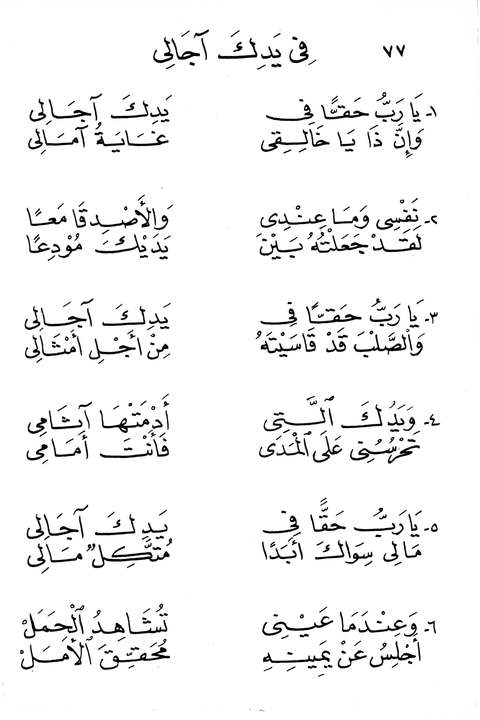 ٧٧ فِى يَدِكَ آجَالِى
١- يَا رَبُّ حَقًّا فِى يَدِكَ آجَالِى
وَإِنَّ ذَا يَا خَالِقِى غَايَةُ آمَالِى
٢- نَفْسِى وَمَا عِنْدِى وَالأَصْدِقَا مَعًا
لَقَدْ جَعَلْتُهُ بَيْنَ يَدَيْكَ مُودِعًا
٣- يَا رَبُّ حَقًّا فِى يَدِكَ آجَالِى
وَالصَّلْبَ قَدْ قَاسَيْتَهُ مِنْ أَجْلِ أَمْثَالِى
٤- وَيَدُكَ الَّتِى أَدْمَتْهَا آثَامِى
تَحْرُسُنِى عَلَى الْمَدَى فَأَنْتَ أَمَامِى
٥- يَا رَبُّ حَقًّا فِى يَدِكَ آجَالِى
مَالِى سِوَاكَ أَبَدًا مُتَّكِلٌ مَالِى
٦- وَعِنْدَمَا عَيْنِى تُشَاهِدُ الْحَمَلْ
أَجْلِسُ عَنْ يَمِينِهِ مُحَقِّقَ الأَمَلْ